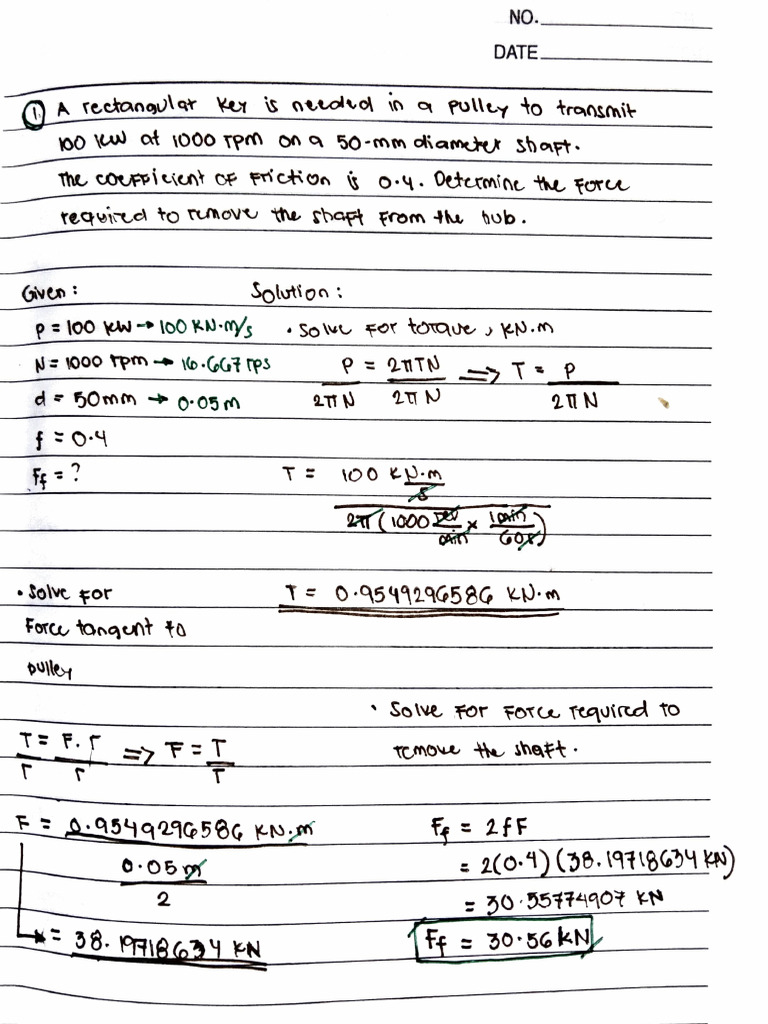 NO.
DATE
① A rectangular key is needed in a pulley to transmit
100 kW at 1000 rpm on a 50-mm diameter shaft.
The coefficient of friction is 0.4. Determine the force
required to remove the shaft from the hub.
Given:
Solution:
P = 100 kW → 100 KN·m/s
N = 1000 rpm → 16.667 rps
d = 50mm → 0.05m
f = 0.4
Ff = ?
• Solve for torque, KN.m
P = 2πTN ⟹ T = P
2πN 2πN 2πN
T = 100 KN·m
s
2π (1000 rev/min × 1min/60s)
T = 0.9549296586 KN·m
• Solve for
Force tangent to
pulley
T = F·r ⟹ F = T
r r r
F = 0.9549296586 KN·m
0.05m
2
= 38.19718634 KN
• Solve for Force required to
remove the shaft.
Ff = 2fF
= 2(0.4)(38.19718634 KN)
= 30.55774907 KN
Ff = 30.56 KN